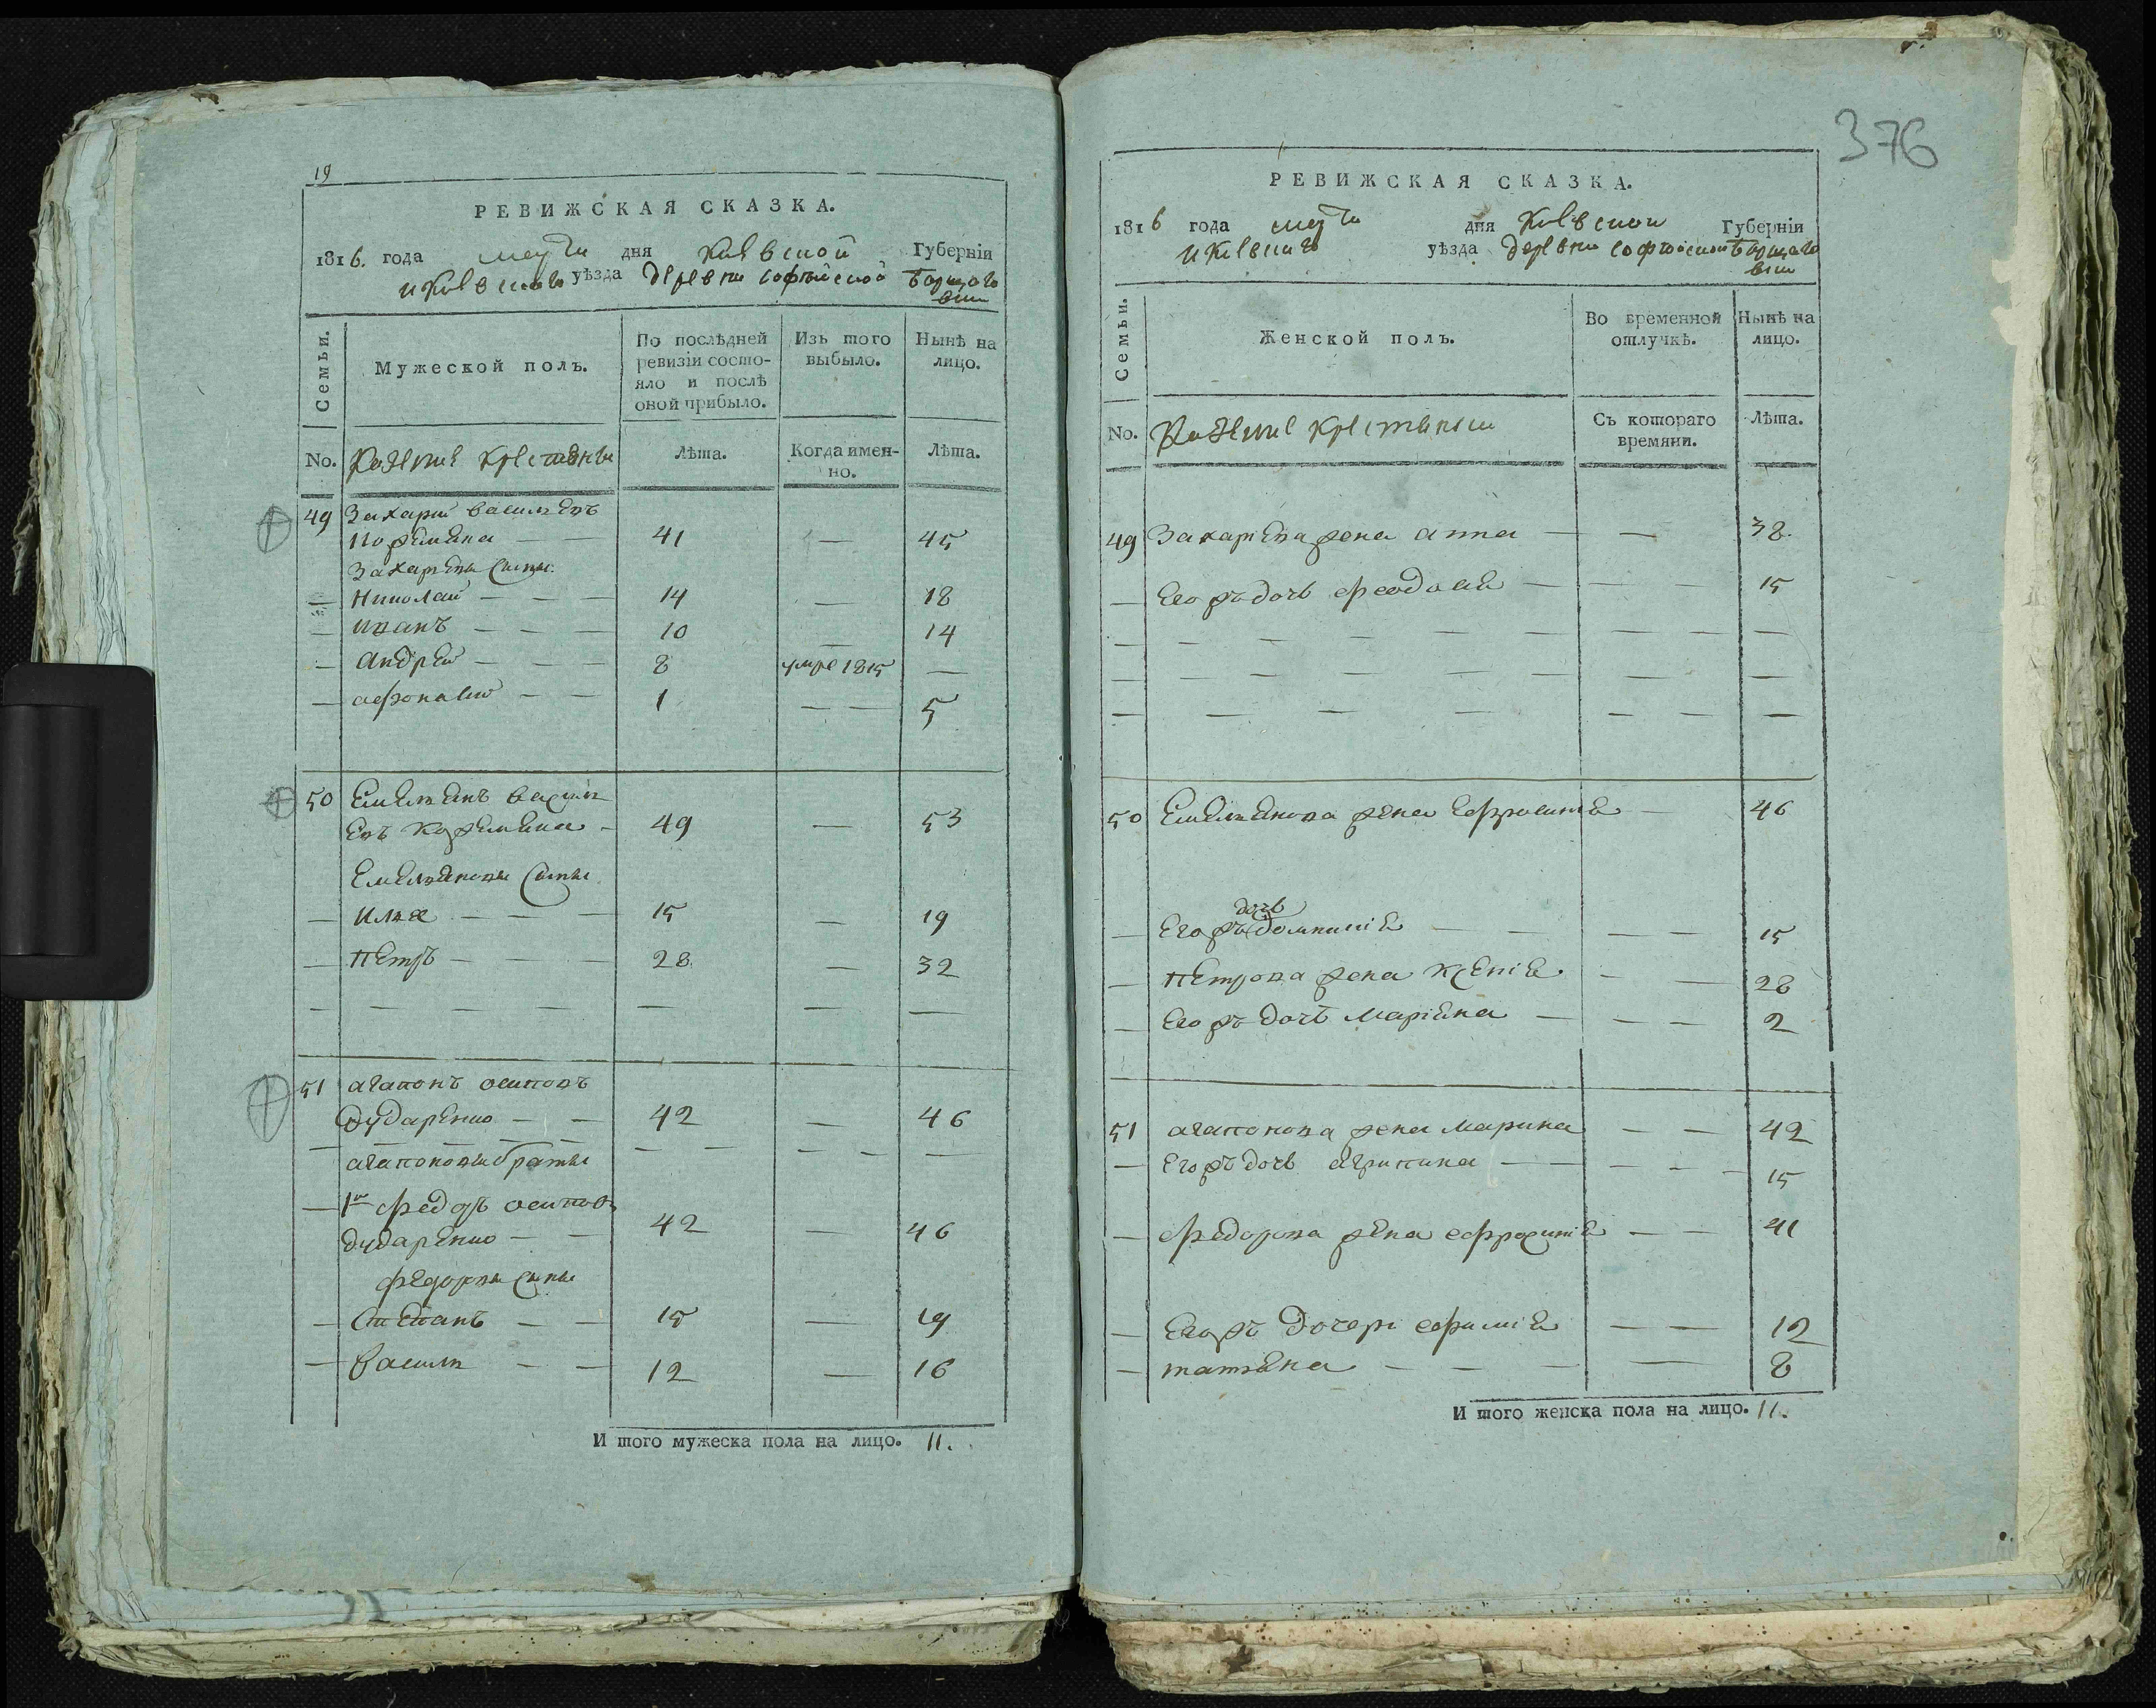 19
РЕВИЖСКАЯ СКАЗКА.
1816. года дня Киевской Губерніи
и Киевского уѣзда деревни Софійской Борщаго
вки
Семьи.
Мужеской полъ.
По послѣдней
ревизіи состо-
яло и послѣ
оной прибыло.
Изъ того
выбыло.
Нынѣ на
лицо.
No. Казенние крестяни
Лѣта.
Когда имен-
но.
Лѣта.
49 Захарій Васильевъ
41 — 45
Захаріевы сыны
— Николай — — — 14 — 18
— Иванъ — — — 10 — 14
— Андрей — — — 8 умре 1815 —
— Афонасий — — 1 — — 5
50 Емельянъ Василь
евъ — 49 — 53
Емельяновы сыны
— Илья — — — 15 — 19
— Петръ — — — 28 — 32
— — — — — — —
51 Агапонъ Осиповъ
Дударенко — — 42 — 46
Агапоновы братья
— 1й Федоръ Осиповъ
Дударенко — — 42 — 46
Федоровы сыны
— Степанъ — — 15 — 19
— Василь — — 12 — 16
И того мужеска пола на лицо. 11.
376
РЕВИЖСКАЯ СКАЗКА.
1816 года дня Киевской Губерніи
и Киевского уѣзда деревни Софійской Борщаго
вки
Семьи.
Женской полъ.
Во временной
отлучкѣ.
Нынѣ на
лицо.
No. Казенние крестянки
Съ котораго
времяни.
Лѣта.
49 Захаріева жена Анна — — 38.
— Его жъ дочь Феодосия — — — 15
— — — — — — — — —
— — — — — — — — —
— — — — — — — —
50 Емельянова жена Ефросиния — 46
дочь
— Его жъ Домникия — — — — 15
— Петрова жена Ксения — — 28
— Его жъ дочь Марияна — — — 2
51 Агапонова жена Марина — — 42
— Его жъ дочь Агрипина — — — — 15
— Федорова жена Ефросиния — — 41
— Его жъ дочери Ефимия — — 12
— Татьяна — — — — 8
И того женска пола на лицо. 11.